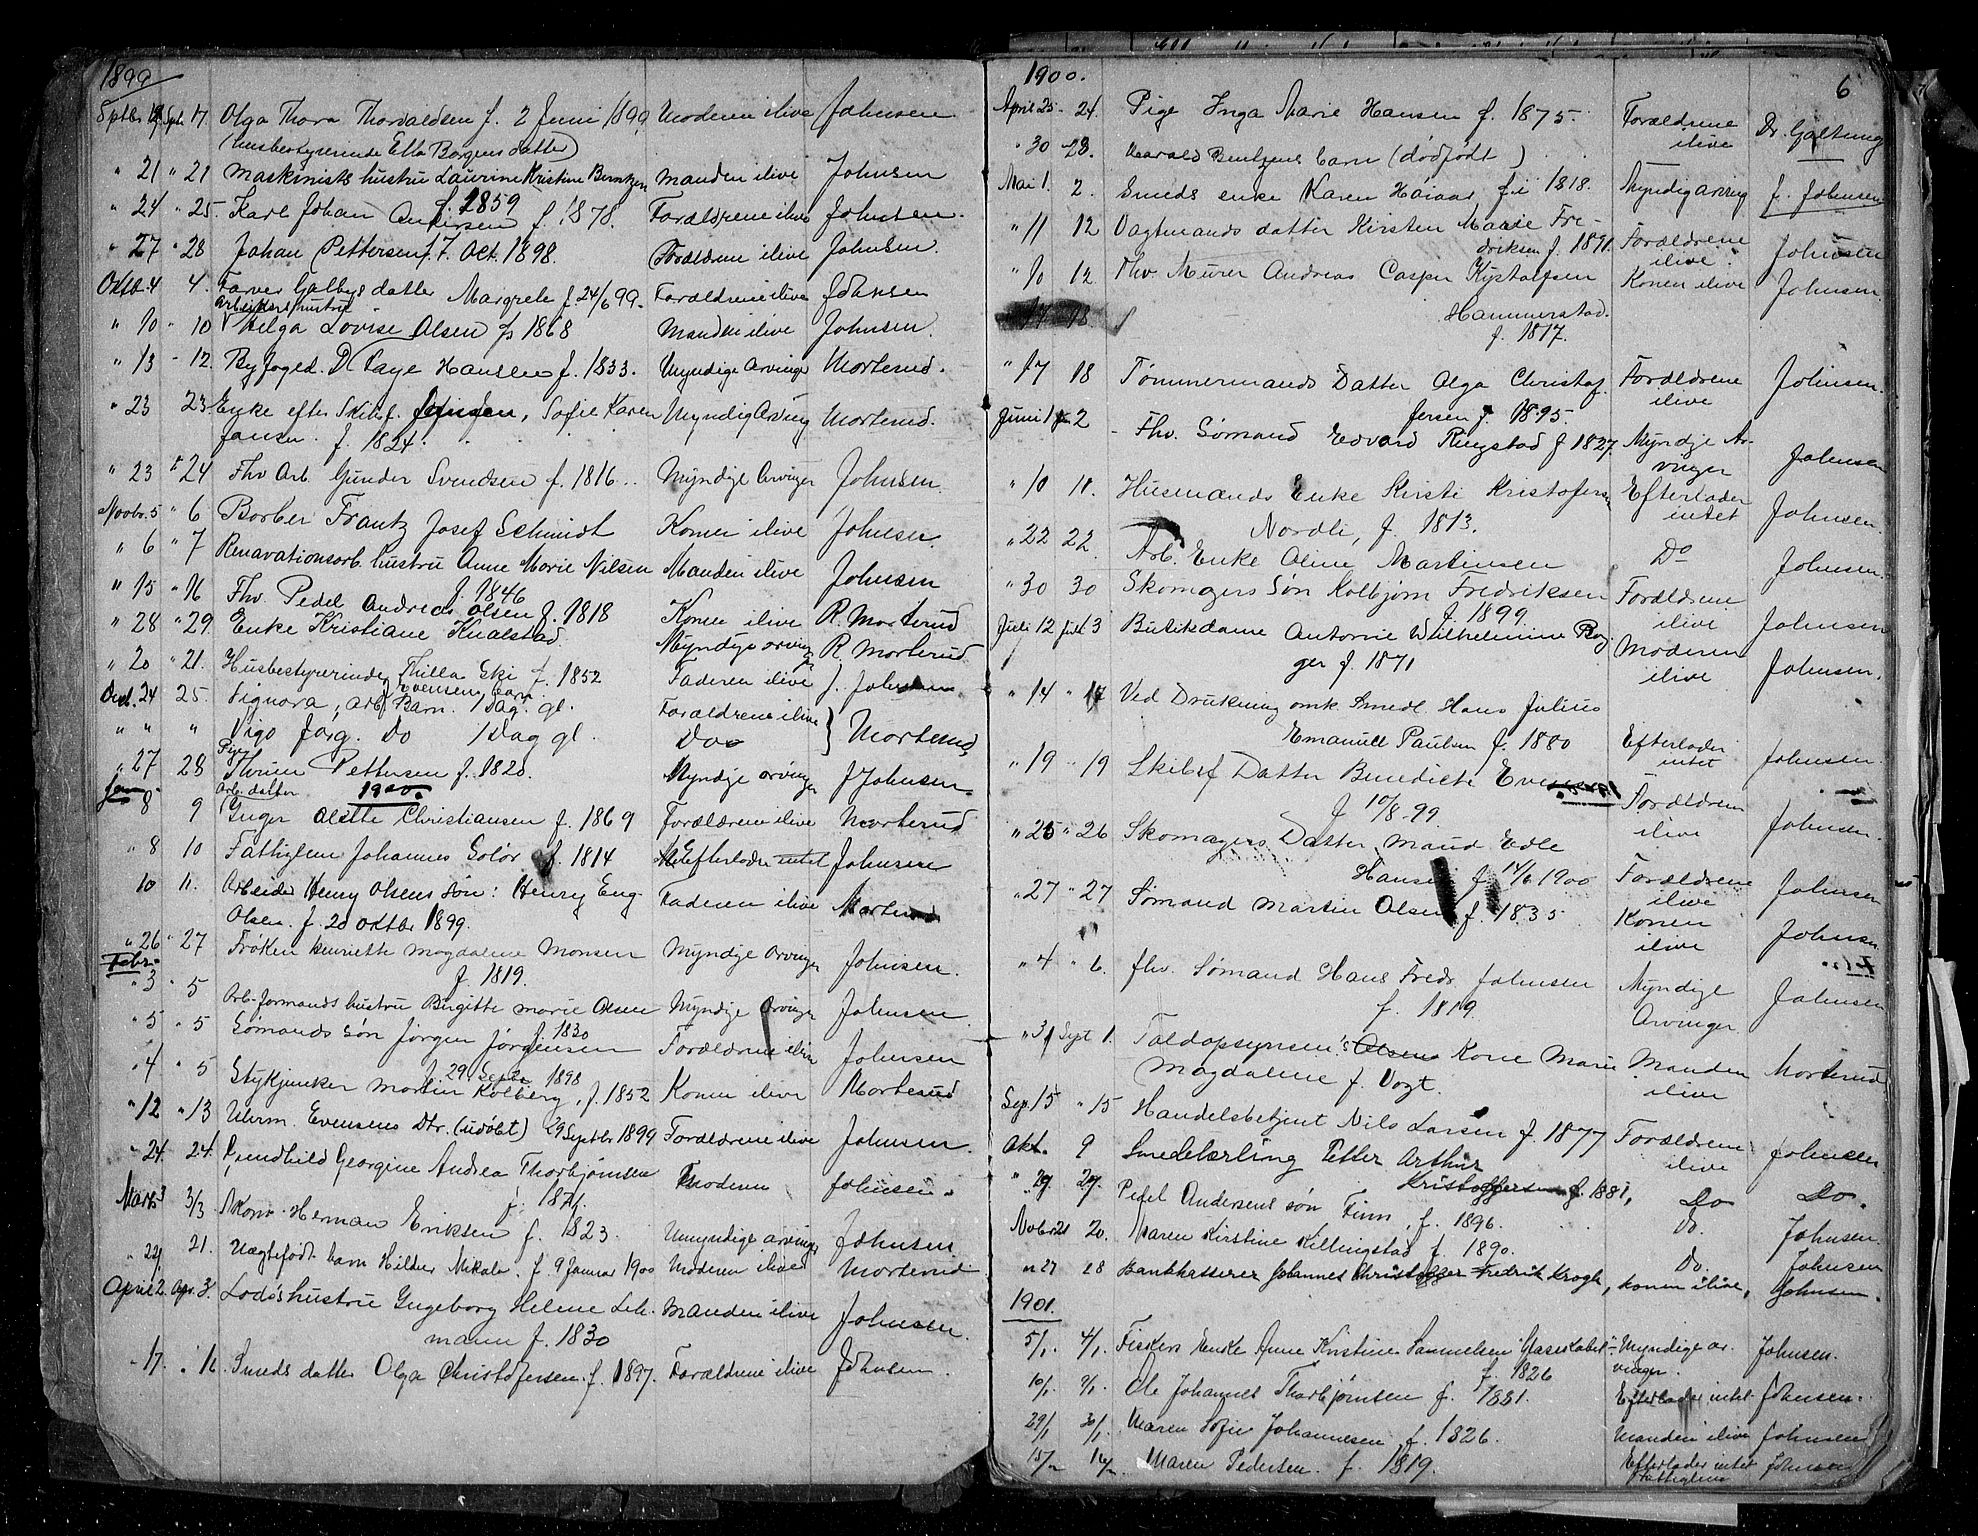 1899
Septbr 17 Olga Thora Thorvaldsen f. 2 Juni 1899 Moderen ilive Johnsen
(Husbestyrerinde Ella Borgens datter)
" 21 " 21 Maskinists hustru Laurine Kristine Berntzen Manden ilive Johnsen
f. 1859
" 24 " 25. Karl Johan Andersen f. 1878. Forældrene ilive Johnsen.
" 27 " 28 Johan Pettersen f. 7. Oct. 1898. Forældrene ilive Johnsen.
Oktb. 4 4. Farver Galbys datter Margrete f. 24/6 99. Forældrene ilive Johnsen
Arbeiders hustru
" 10 " 10 Helga Lovise Olsen f. 1868 Manden ilive Johnsen.
" 13 - 12. Byfoged D. Faye Hansen f. 1833. Myndige Arvinger Morterud.
" 23 23 Enke efter Skibsf. Jansen, Sofie Karen Myndig Arving Morterud.
Jansen. f. 1824.
" 23 " 24 Fhv Arb. Gunder Svendsen f. 1816.. Myndige Arvinger Johnsen.
Novbr. 5 " 6 Barber Frantz Josef Schmidt Konen ilive Johnsen.
" 6 " 7 Renavationsarb. hustru Anne Marie Nilsen Manden ilive Johnsen
f. 1846
" 15 " 16 Fhv. Pedel Andreas Olsen f. 1818 Konen ilive R. Morterud
" 28 " 29. Enke Kristiane Knalstad. Myndige arvinger R Morterud
" 20 " 21. Husbestyrerinde Thilla Ski f. 1852 Faderen ilive J. Johnsen
Evensens barn
Decb. 24 25. Signora, Arb. Barn. 1 Dag. gl. Forældrene ilive
" " " Vigo Jørg. Do 1 Dag gl. Do } Morterud
Pige
" 27 28 Thrine Pettersen f. 1820. Myndige arvinger J Johnsen.
Jan. Arb. datter 1900.
8 9 Inger Alette Christiansen f. 1869 Forældrene ilive Morterud
" 8 10 Fattiglem Johannes Solør f. 1814 Efterlader intet Johnsen
10 11. Arbeider Henry Olsens søn: Henry Eng. Faderen ilive Morterud
Olsen. f. 20 oktbr 1899.
" 26 " 27 Frøken Henriette Magdalene Monsen Myndige Arvinger Johnsen.
Febr. f. 1819.
" 3 " 5 Arb. formands hustru Birgitte Marie Olsen Myndige Arvinger Johnsen.
f. 1830
" 5 " 5 Sømands søn Jørgen Jørgensen Forældrene ilive Johnsen
f. 29 Septr 1898
" 4 " 5 Stykjunker Martin Kolberg, f. 1852 Konen ilive Morterud
" 12 " 13 Uhrm. Evensens Dtr. (udøbt) 29 Septbr 1899 Forældrene ilive Johnsen.
" 24. 24. Gundhild Georgine Andrea Thorbjørnsen Moderen Johnsen.
f. 1871.
Marts 3 3/3. Herman Eriksen f. 1823. Umyndige arvinger Johnsen.
21. Uægtefødt barn Hilder Mikala. f. 9 Januar 1900 Moderen ilive Morterud
April 2. Apr. 3. Lods hustru Ingeborg Helene Leh- Manden ilive Johnsen.
mann f. 1830
- 17. Smeds datter Olga Christofersen. f. 1897. Forældrene ilive Johnsen.
1900. 6
April 25 - 24. Pige Inga Marie Hansen f. 1875. Forældrene ilive Dr. Galtung
" 30 28. Harald Bentzens barn (dødfødt)
Mai 1. 2. Smeds enke Karen f. i 1818. Myndig arving J. Johnsen
" 11 12 Vagtmands datter Kirsten Marie Fre-
driksen f. 1891. Forældrene ilive. Johnsen
" 10 12. Fhv. Murer Andreas Casper Gustafsen Konen ilive Johnsen.
17 18 Hammerstad.
f. 1817.
" 17 18 Tømmermands Datter Olga Christof- Forældrene ilive Johnsen.
fersen f. 1895.
Juni 1 2 Fhv. Sømand Edvard Ringstad f 1827. Myndige Ar-
vinger Johnsen
" 10 11. Husmands Enke Kirsti Kristofers. Efterlader intet Johnsen.
Nordli, f. 1813.
" 22 22. Arb. Enke Oline Martinsen Do Johnsen.
" 30 30 Skomagers Søn Kolbjørn Fredriksen Forældrene ilive Johnsen
f. 1899.
Juli 12 Juli 13 Butikdame Antonie Wilhelmine Moderen ilive Johnsen.
ger f. 1871
" 14 " 17 Ved Drukning omk. Smedl. Hans Julius
Emanuel Paulsen f. 1880 Efterlader intet Johnsen.
" 19 " 19 Skibsf Datter Benedicte Evensen Forældrene ilive Johnsen.
f 10/8-99.
" 25 " 26 Skomagers Datter Maud Edle
Hansen f. 14/6 1900 Forældrene ilive Johnsen
" 27 " 27 Sømand Martin Olsen f. 1835. Konen ilive Johnsen
" 4 " 6. fhv. Sømand Hans Fredr. Johnsen Myndige Arvinger Johnsen
f. 1819.
" 31 Sept 1. Toldopsynsm.s Olsens Kone Marie Manden ilive Morterud
Magdalene f. Vogt.
Sep. 15 " 15 Handelsbetjent Nils Larsen f. 1877. Forældrene ilive Johnsen
Okt. 9 Smedelærling Petter Arthur
Kristoffersen f. 1881, Do Do.
" 29 29. Pedel Andersens søn Finn, f. 1896. Do. Johnsen.
Novbr 21 20. Maren Kirstine Killingstad f. 1890. Do. Johnsen
" 27 28 Bankkasserer Johannes Christoffer Fredrik Krogh, konen ilive, Johnsen.
1901.
5/1. 4/1. Fiskers Enke Anne Kristine Samuelsen Myndige ar- Johnsen.
f. 1826 vinger.
10/1. 9/1. Ole Johannes Thorbjørnsen f. 1831. Efterlader intet Johnsen.
29/1 30/1. Maren Sofie Johannesen f. 1826. Manden ilive Johnsen
15/2 16/2. Maren Pedersen. f. 1819. Efterlader intet Johnsen
Fattiglem